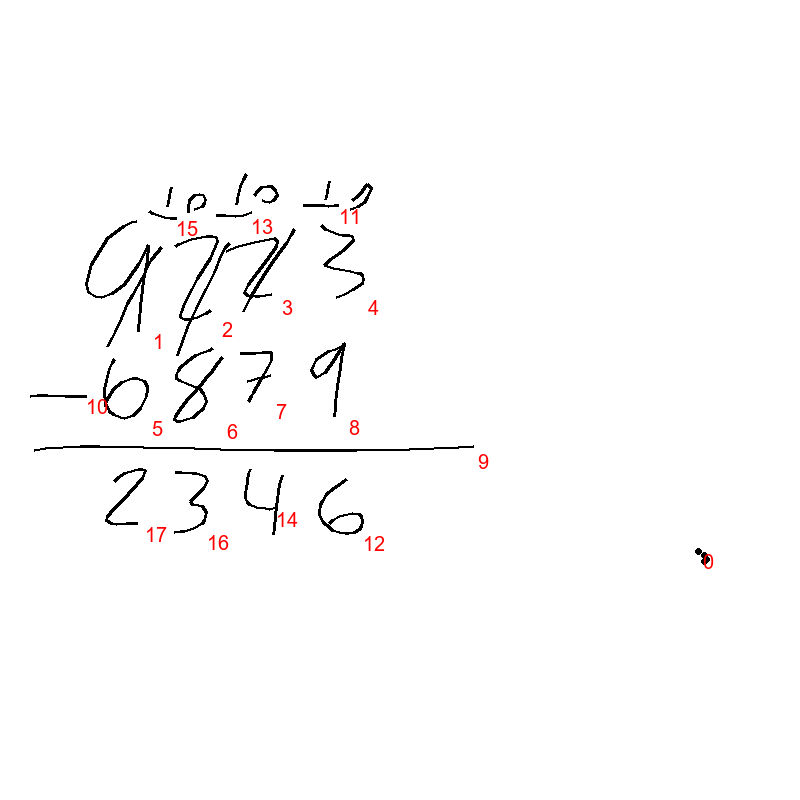 10 10 10
15 13 11
9 2 2 3
1 2 3 4
- 6 8 7 9
10 5 6 7 8
9
2 3 4 6
17 16 14 12
0